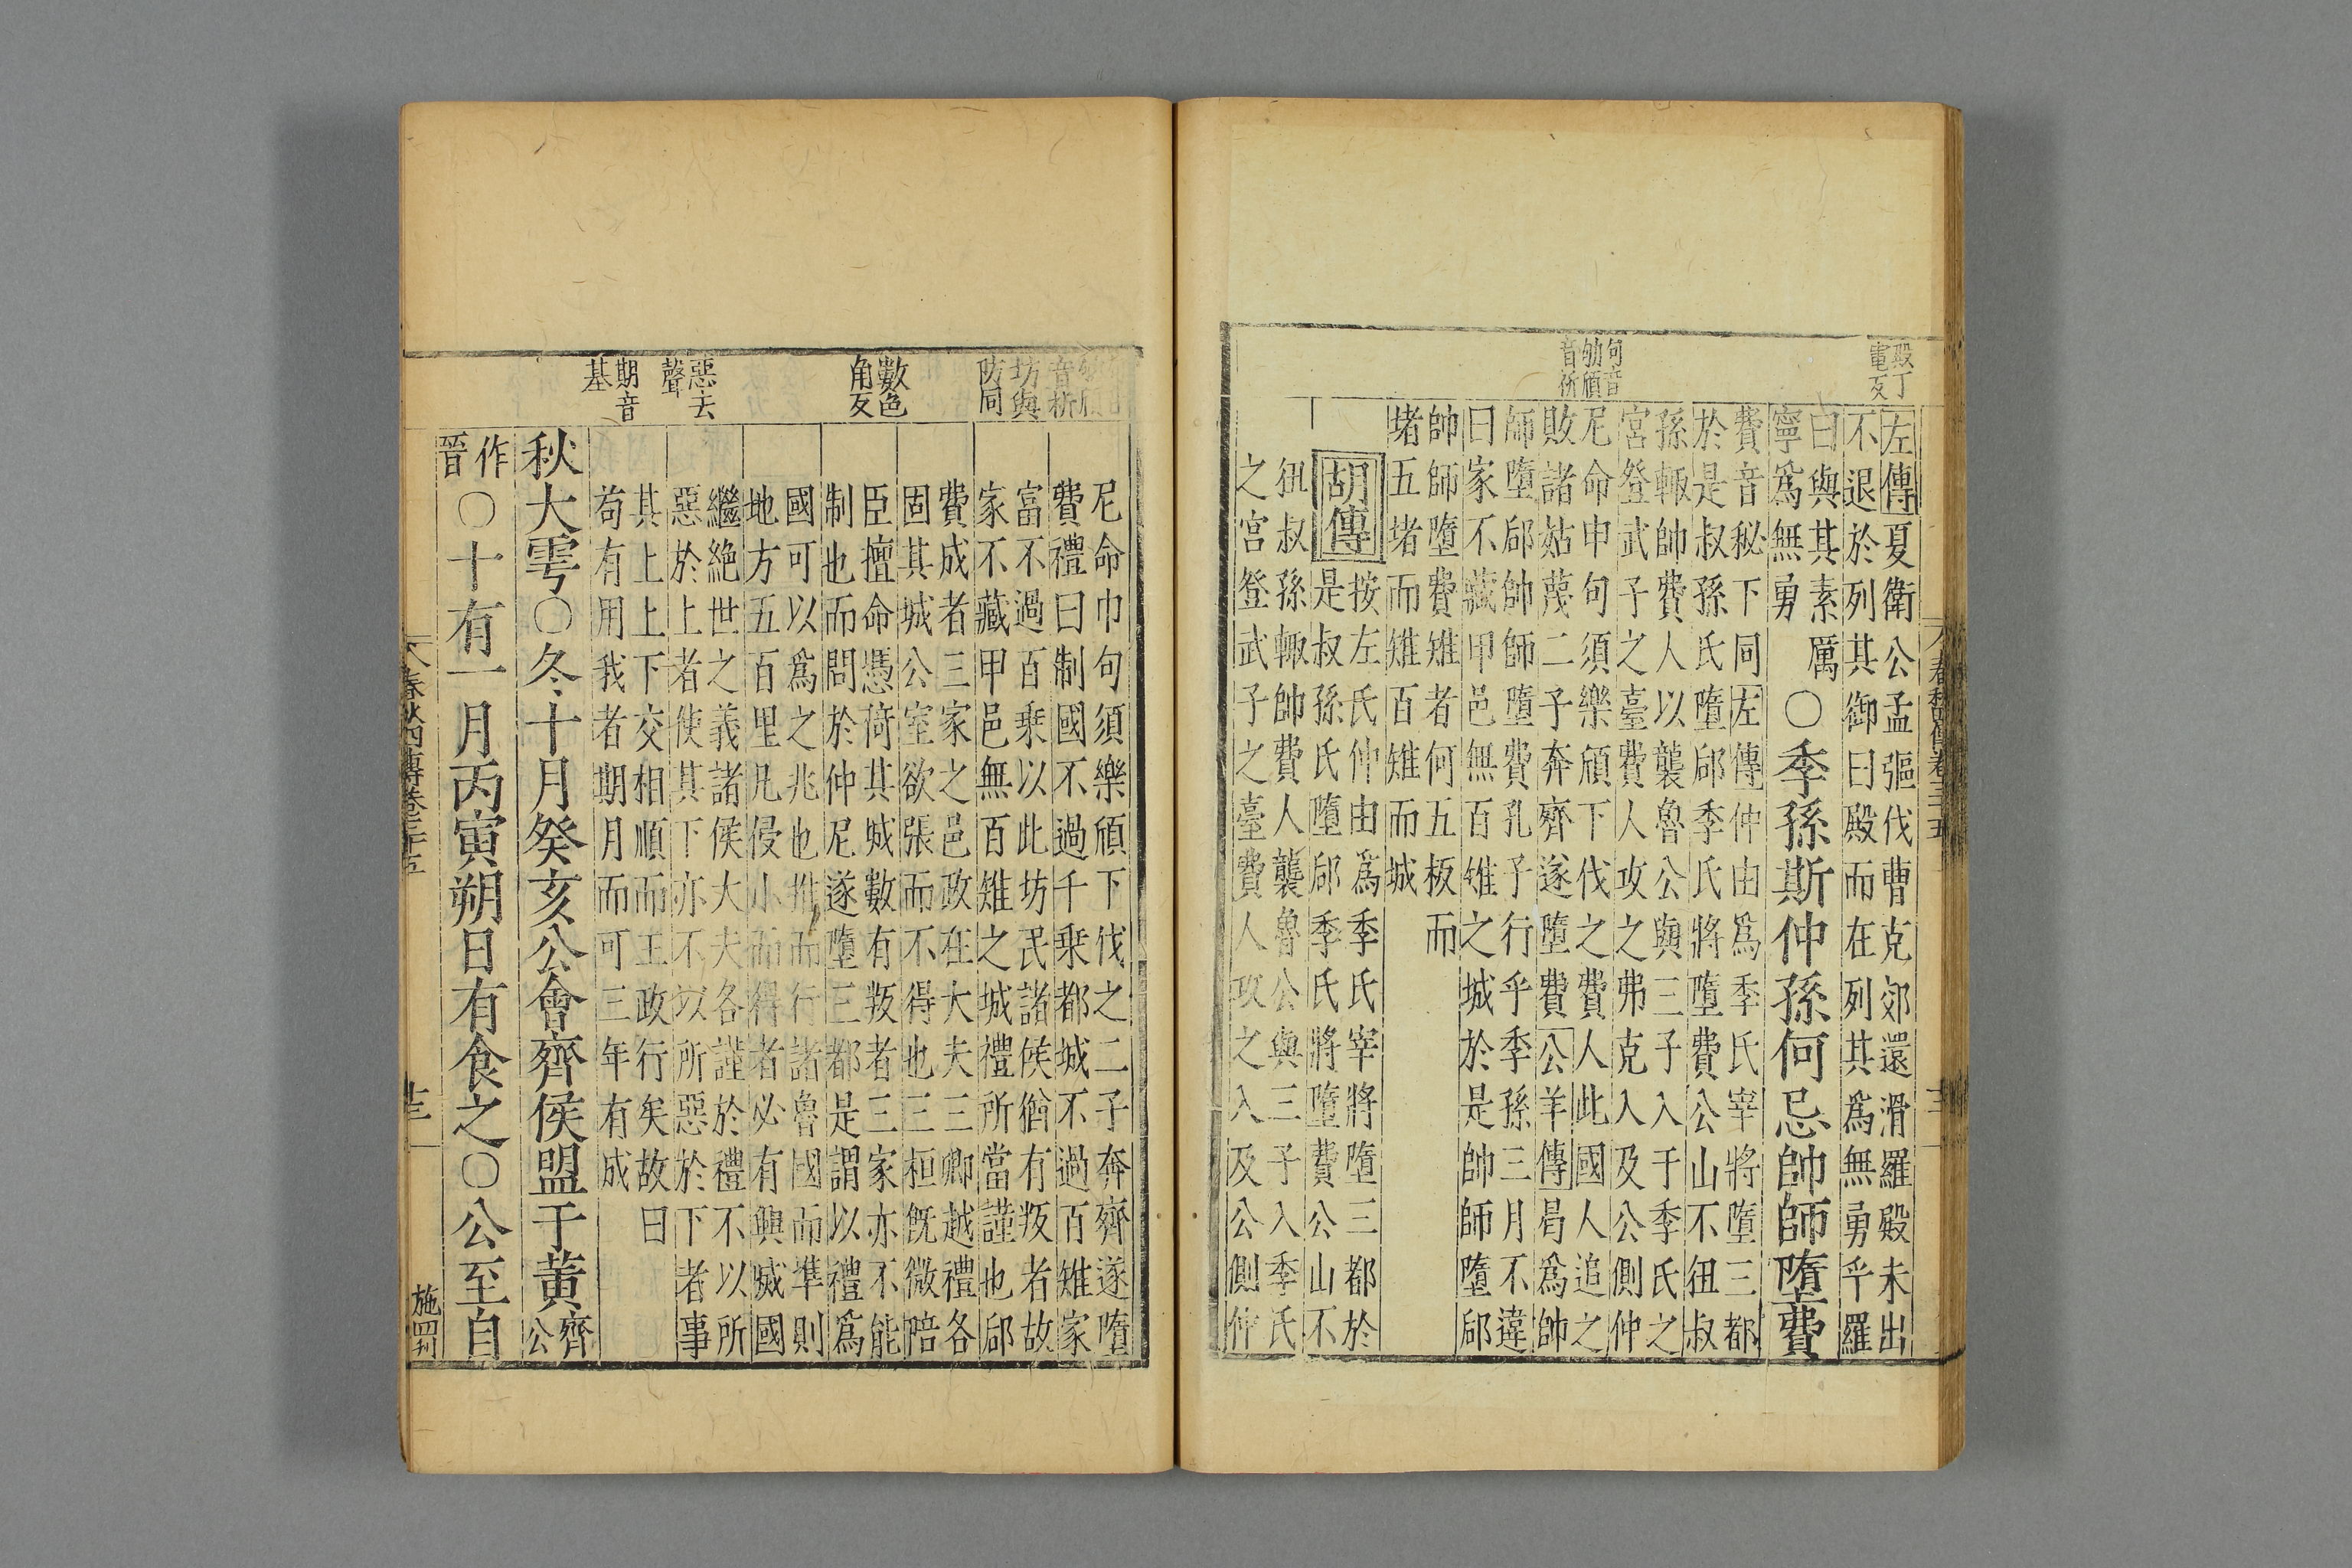 殿丁
電反
句音
劬頎
音祈
左傳夏衛公孟彄伐曹克郊還滑羅殿未出
不退於列其御曰殿而在列其爲無勇乎羅
曰與其素厲
寧爲無勇
○季孫斯仲孫何忌帥師墮費
費音秘下同左傳仲由爲季氏宰將墮三都
於是叔孫氏墮郈季氏將墮費公山不狃叔
孫輒帥費人以襲魯公與三子入于季氏之
宮登武子之臺費人攻之弗克入及公側仲
尼命申句須樂頎下伐之費人此國人追之
敗諸姑蔑二子奔齊遂墮費公羊傳曷爲帥
師墮郈帥師墮費孔子行乎季孫三月不違
曰家不藏甲邑無百雉之城於是帥師墮郈
帥師墮費雉者何五板而
堵五堵而雉百雉而城
胡傳
按左氏仲由爲季氏宰將墮三都於
是叔孫氏墮郈季氏將墮費公山不
狃叔孫輒帥費人襲魯公與三子入季氏
之宮登武子之臺費人攻之入及公側仲
春秋四傳卷三十五
十三
音祈
坊與
防同
數色
角反
惡去
聲
期音
基
尼命巾句須樂頎下伐之二子奔齊遂墮
費禮曰制國不過千乗都城不過百雉家
富不過百乗以此坊民諸侯猶有叛者故
家不藏甲邑無百雉之城禮所當謹也郈
費成者三家之邑政在大夫三卿越禮各
固其城公室欲張而不得也三桓旣微陪
臣擅命憑倚其城數有叛者三家亦不能
制也而問於仲尼遂墮三都是謂以禮爲
國可以爲之兆也推而行諸魯國而準則
地方五百里凡侵小而得者必有興滅國
繼絶世之義諸侯大夫各謹於禮不以所
惡於上者使其下亦不以所惡於下者事
其上上下交相順而王政行矣故曰
苟有用我者期月而可三年有成
秋大雩○冬十月癸亥公會齊侯盟于黄齊
公
作
晉
○十有一月丙寅朔日有食之○公至自
春秋四傳卷三十五
十三
施四刊